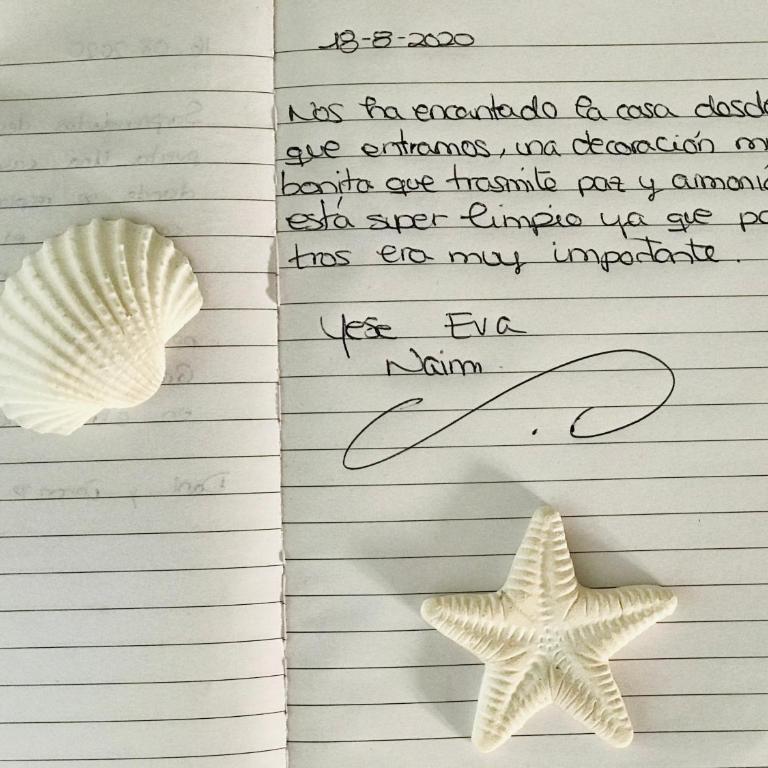 18-8-2020
Nos ha encantado la casa desde
que entramos, una decoración m
bonita que trasmite paz y armoní
está super limpio ya que p
tros era muy importante.
Yese Eva
Naim